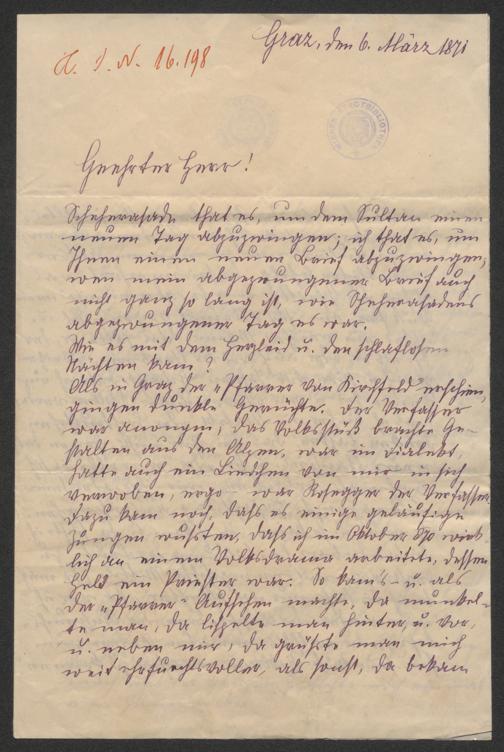 H. I. N. 16.198
Graz, den 6. März 1871
Geehrter Herr!
Scheherasade that es, um dem Sultan einen
neuen Tag abzuzwingen; ich that es, um
Ihnen einen neuen Brief abzuzwingen,
wen mein abgezwungener Brief auch
nicht ganz so lang ist, wie Scheherasadens
abgezwungener Tag es war.
Wie es mit dem Herzleid u. den schlaflosen
Nächten kam?
Als in Graz der „Pfarrer von Kirchfeld" erschien,
gingen dunkle Gerüchte. Der Verfasser
war anonym; das Volksstück brachte Ge-
stalten aus den Alpen, war im Dialekt,
hatte auch ein Liedchen von mir in sich
verwoben, ergo – war Rosegger der Verfasser.
Dazu kam noch, dass es einige geläufige
Zungen wussten, dass ich im Oktober 870 wirk
lich an einem Volksdrama arbeitete, dessen
Held ein Priester war. So kam's – u. als
der „Pfarrer" Aufsehen machte, da munkel-
te man, da lispelte man hinter, u. vor,
u. neben mir, da grüsste man mich
weit ehrfurchtsvoller, als sonst, da bekam